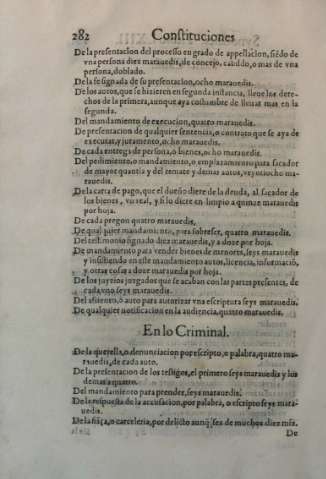 282 Constituciones
De la presentacion del processo en grado de appellacion, siẽdo de
vna persona diez marauedis, de concejo, cabildo, o mas de vna
persona, doblado.
De la fe signada de su presentacion, ocho marauedis.
De los autos, que se hizieren en segunda instancia, lleue los dere-
chos de la primera, aunque aya costumbre de lleuar mas en la
segunda.
Del mandamiento de execucion, quatro marauedis.
De presentacion de qualquier sentencia, o contrato que se aya de
executar, y juramento, ocho marauedis.
De cada entrega de persona, o bienes, ocho marauedis.
Del pedimiento, o mandamiento, o emplazamiento para sacador
de mayor quantia y del remate y demas autos, veyntiocho ma-
rauedis.
De la carta de pago, que el dueño diere de la deuda, al sacador de
los bienes, vn real, y si lo diere en limpio a quinze marauedis
por hoja.
De cada pregon quatro marauedis.
De qualquier mandamiento, para sobreser, quatro marauedis.
Del testimonio signado diez marauedis, y a doze por hoja.
De mandamiento para vender bienes de menores, seys marauedis
y insistiendo en este mandamiento autos, licencia, informaciõ,
y otras cosas a doze marauedis por hoja.
De los juyzios juzgados que se acaban con las partes presentes, de
cada vno seys marauedis.
Del assiento, o auto para autorizar vna escriptura seys marauedis.
De qualquier notificacion en la audiencia, quatro marauedis.
En lo Criminal.
De la querella, o denunciacion por escripto, o palabra, quatro ma-
rauedis, de cada auto.
De la presentacion de los testigos, el primero seys marauedis y los
demas a quatro.
Del mandamiento para prender, seys marauedis.
De la respuesta de la accusacion, por palabra, o escripto seys mara-
uedis.
De la fiãça, o carceleria, por delicto aunq̃ sea de muchos diez mrs.
De